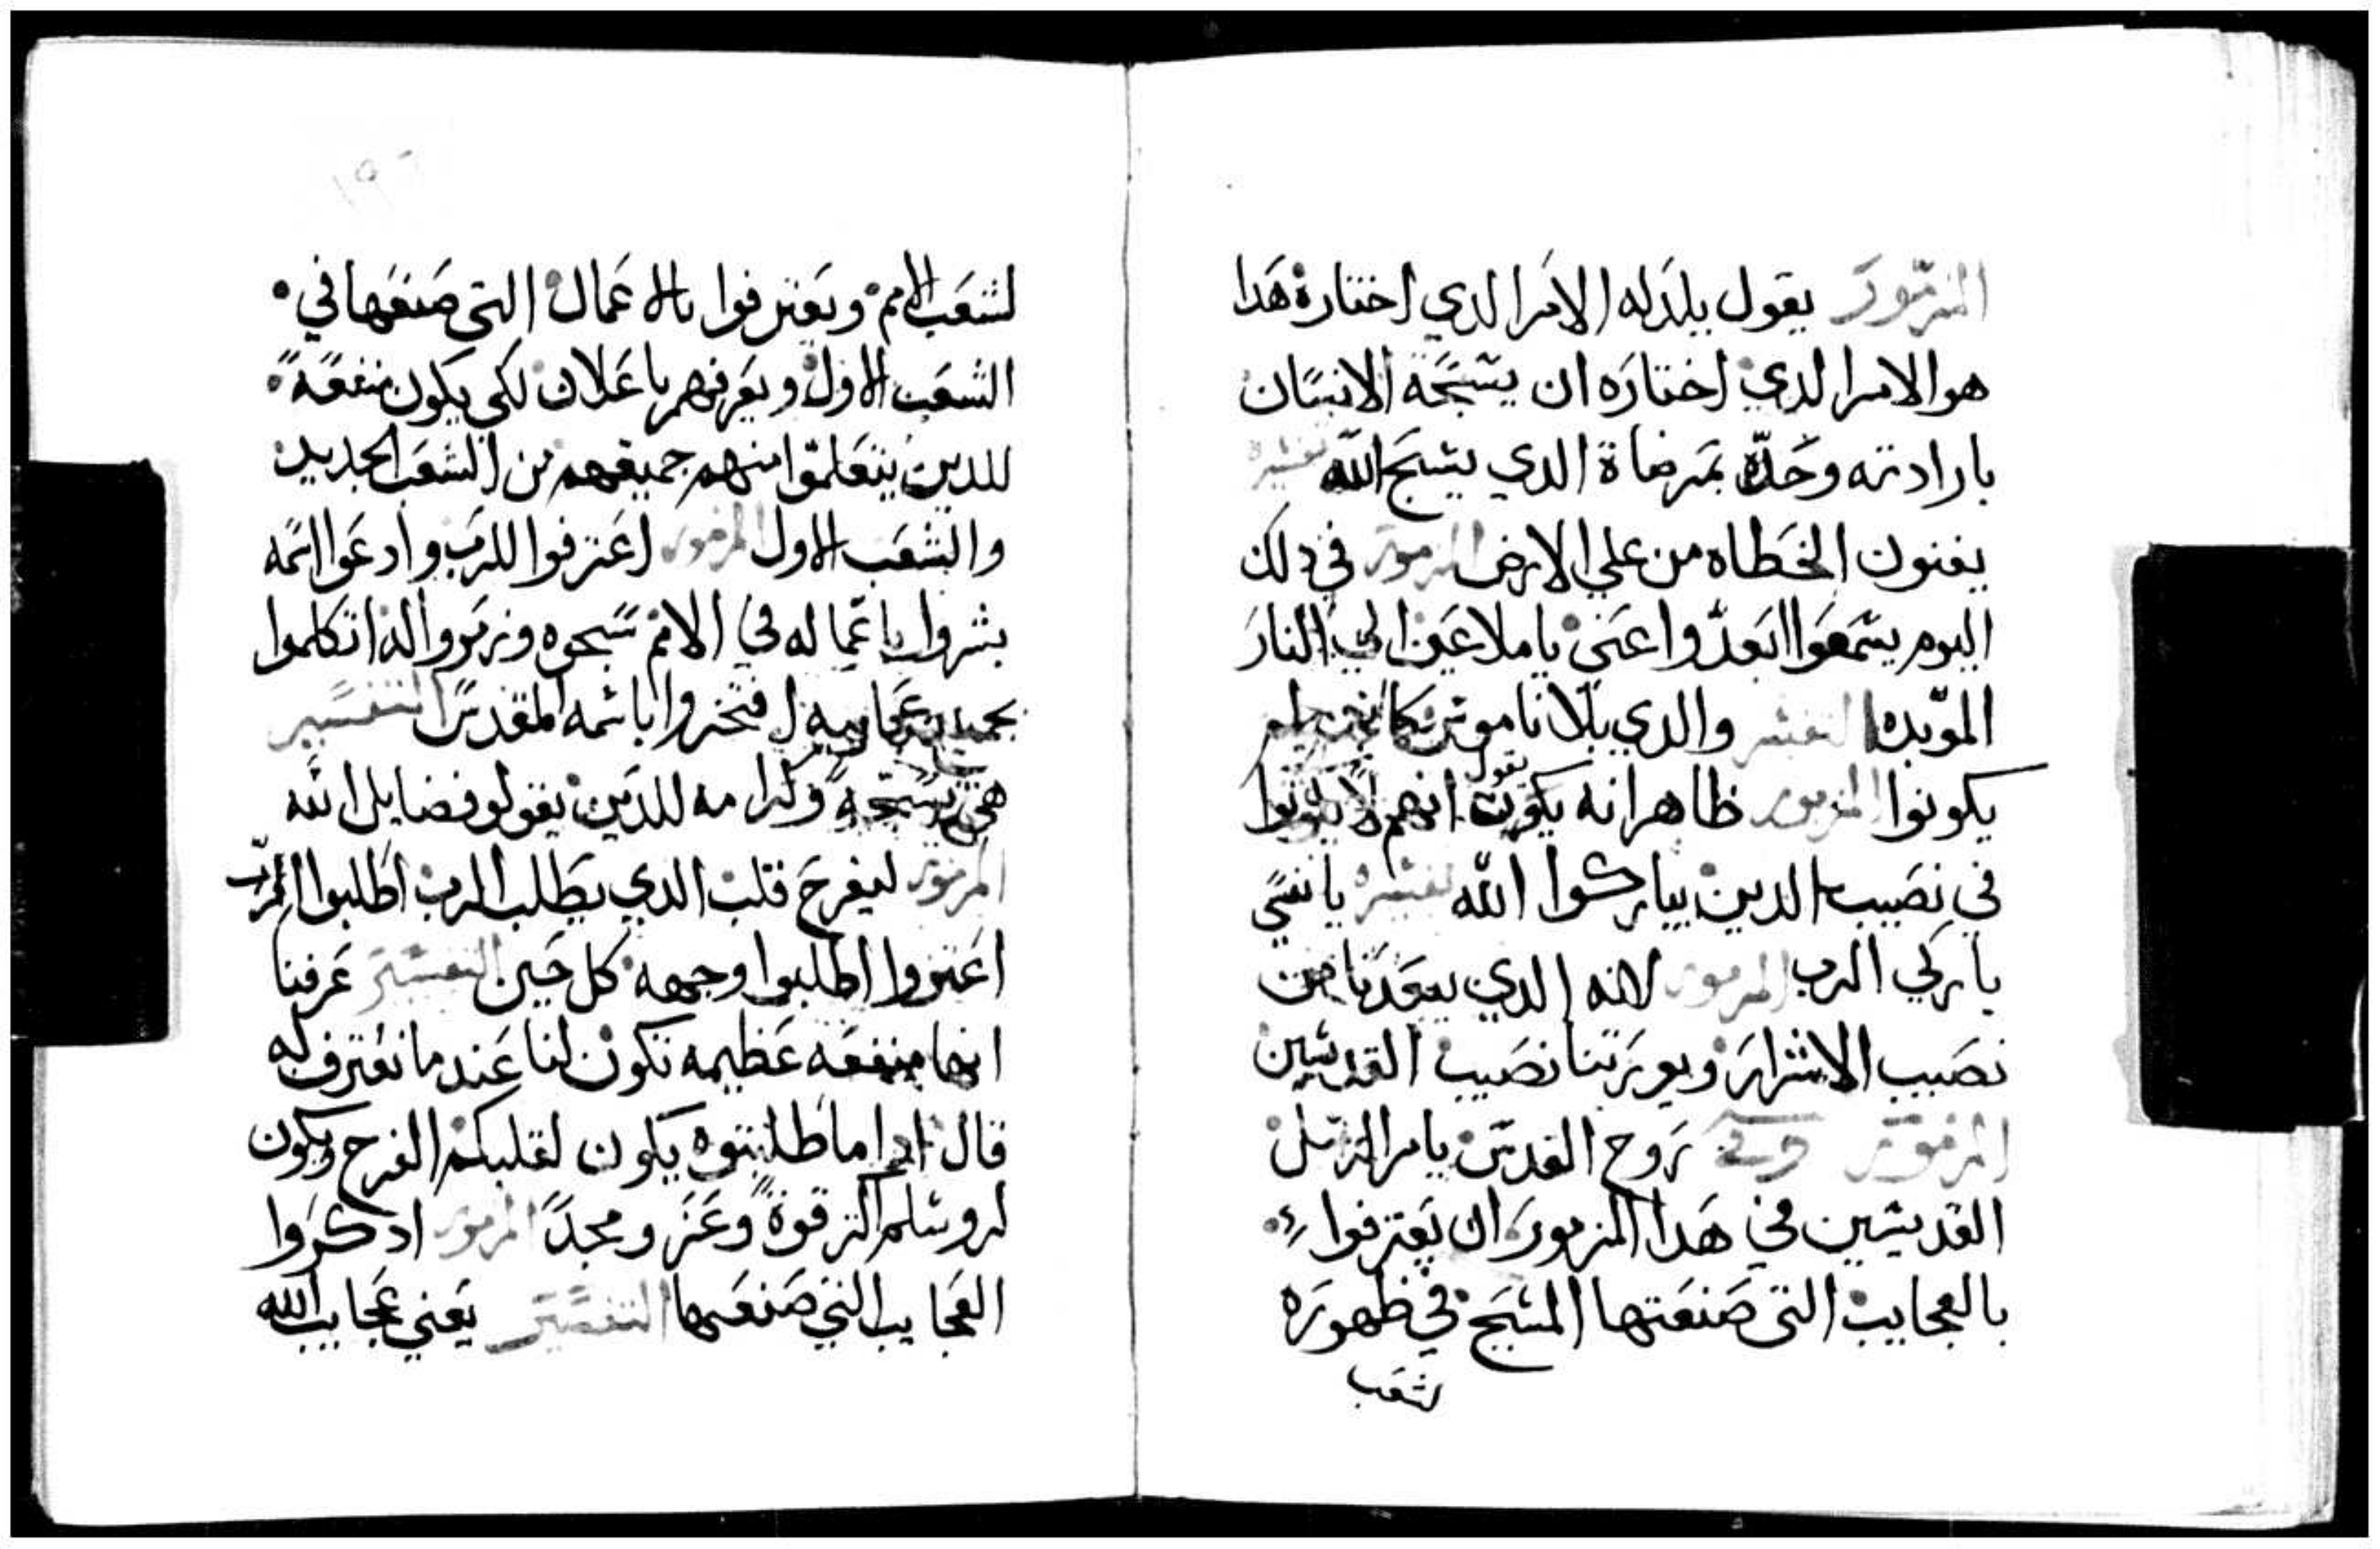 المزمور يقول يلدله الامر الدي اختاره هدا
هو الامر الدي اختاره ان يسبحه الانسان
بارادته وحده بمرضاة الدي يسبح الله تفسيره
يفنون الخطاه من علي الارض المزمور في دلك
اليوم يسمعوا ابعدوا عني يا ملاعين الي النار
الموبده التفسير والدي بلا ناموس كانهم لم
يكونوا المزمور ظاهر انه يقول انهم لا يكونوا
في نصيب الدين يباركوا الله تفسيره يا نفسي
باركي الرب المزمور لانه الدي يبعدنا من
نصيب الاشرار ويورتنا نصيب القديسين
المزمور روح القدس يامر الرسل
القديسين في هدا المزمور ان يعترفوا
بالعجايب التي صنعتها المسيح في ظهوره
لشعب
١٩٦
لشعب الامم ويعترفوا بالاعمال التي صنعها في
الشعب الاول ويعرفهم باعلان لكي يكون منفعة
للدين يتعلموا منهم جميعهم من الشعب الجديد
والشعب الاول المزمور اعترفوا للرب وادعوا اسمه
بشروا باعماله في الامم سبحوه ورتلوا له اتكلموا
بجميع عجايبه افتخروا باسمه المقدس التفسير
هي تسبحة وكرامه للدين يقولو فضايل الله
المزمور ليفرح قلب الدي يطلب الرب اطلبوا الرب
اعتزوا اطلبوا وجهه كل حين التفسير عرفنا
انها منفعه عظيمه تكون لنا عندما نعترف له
قال ادا ما طلبتوه يكون لقلبكم الفرح ويكون
لروسلم اكتر قوة وعز ومجدا المزمور ادكروا
العجايب التي صنعها التفسير يعني عجايب الله